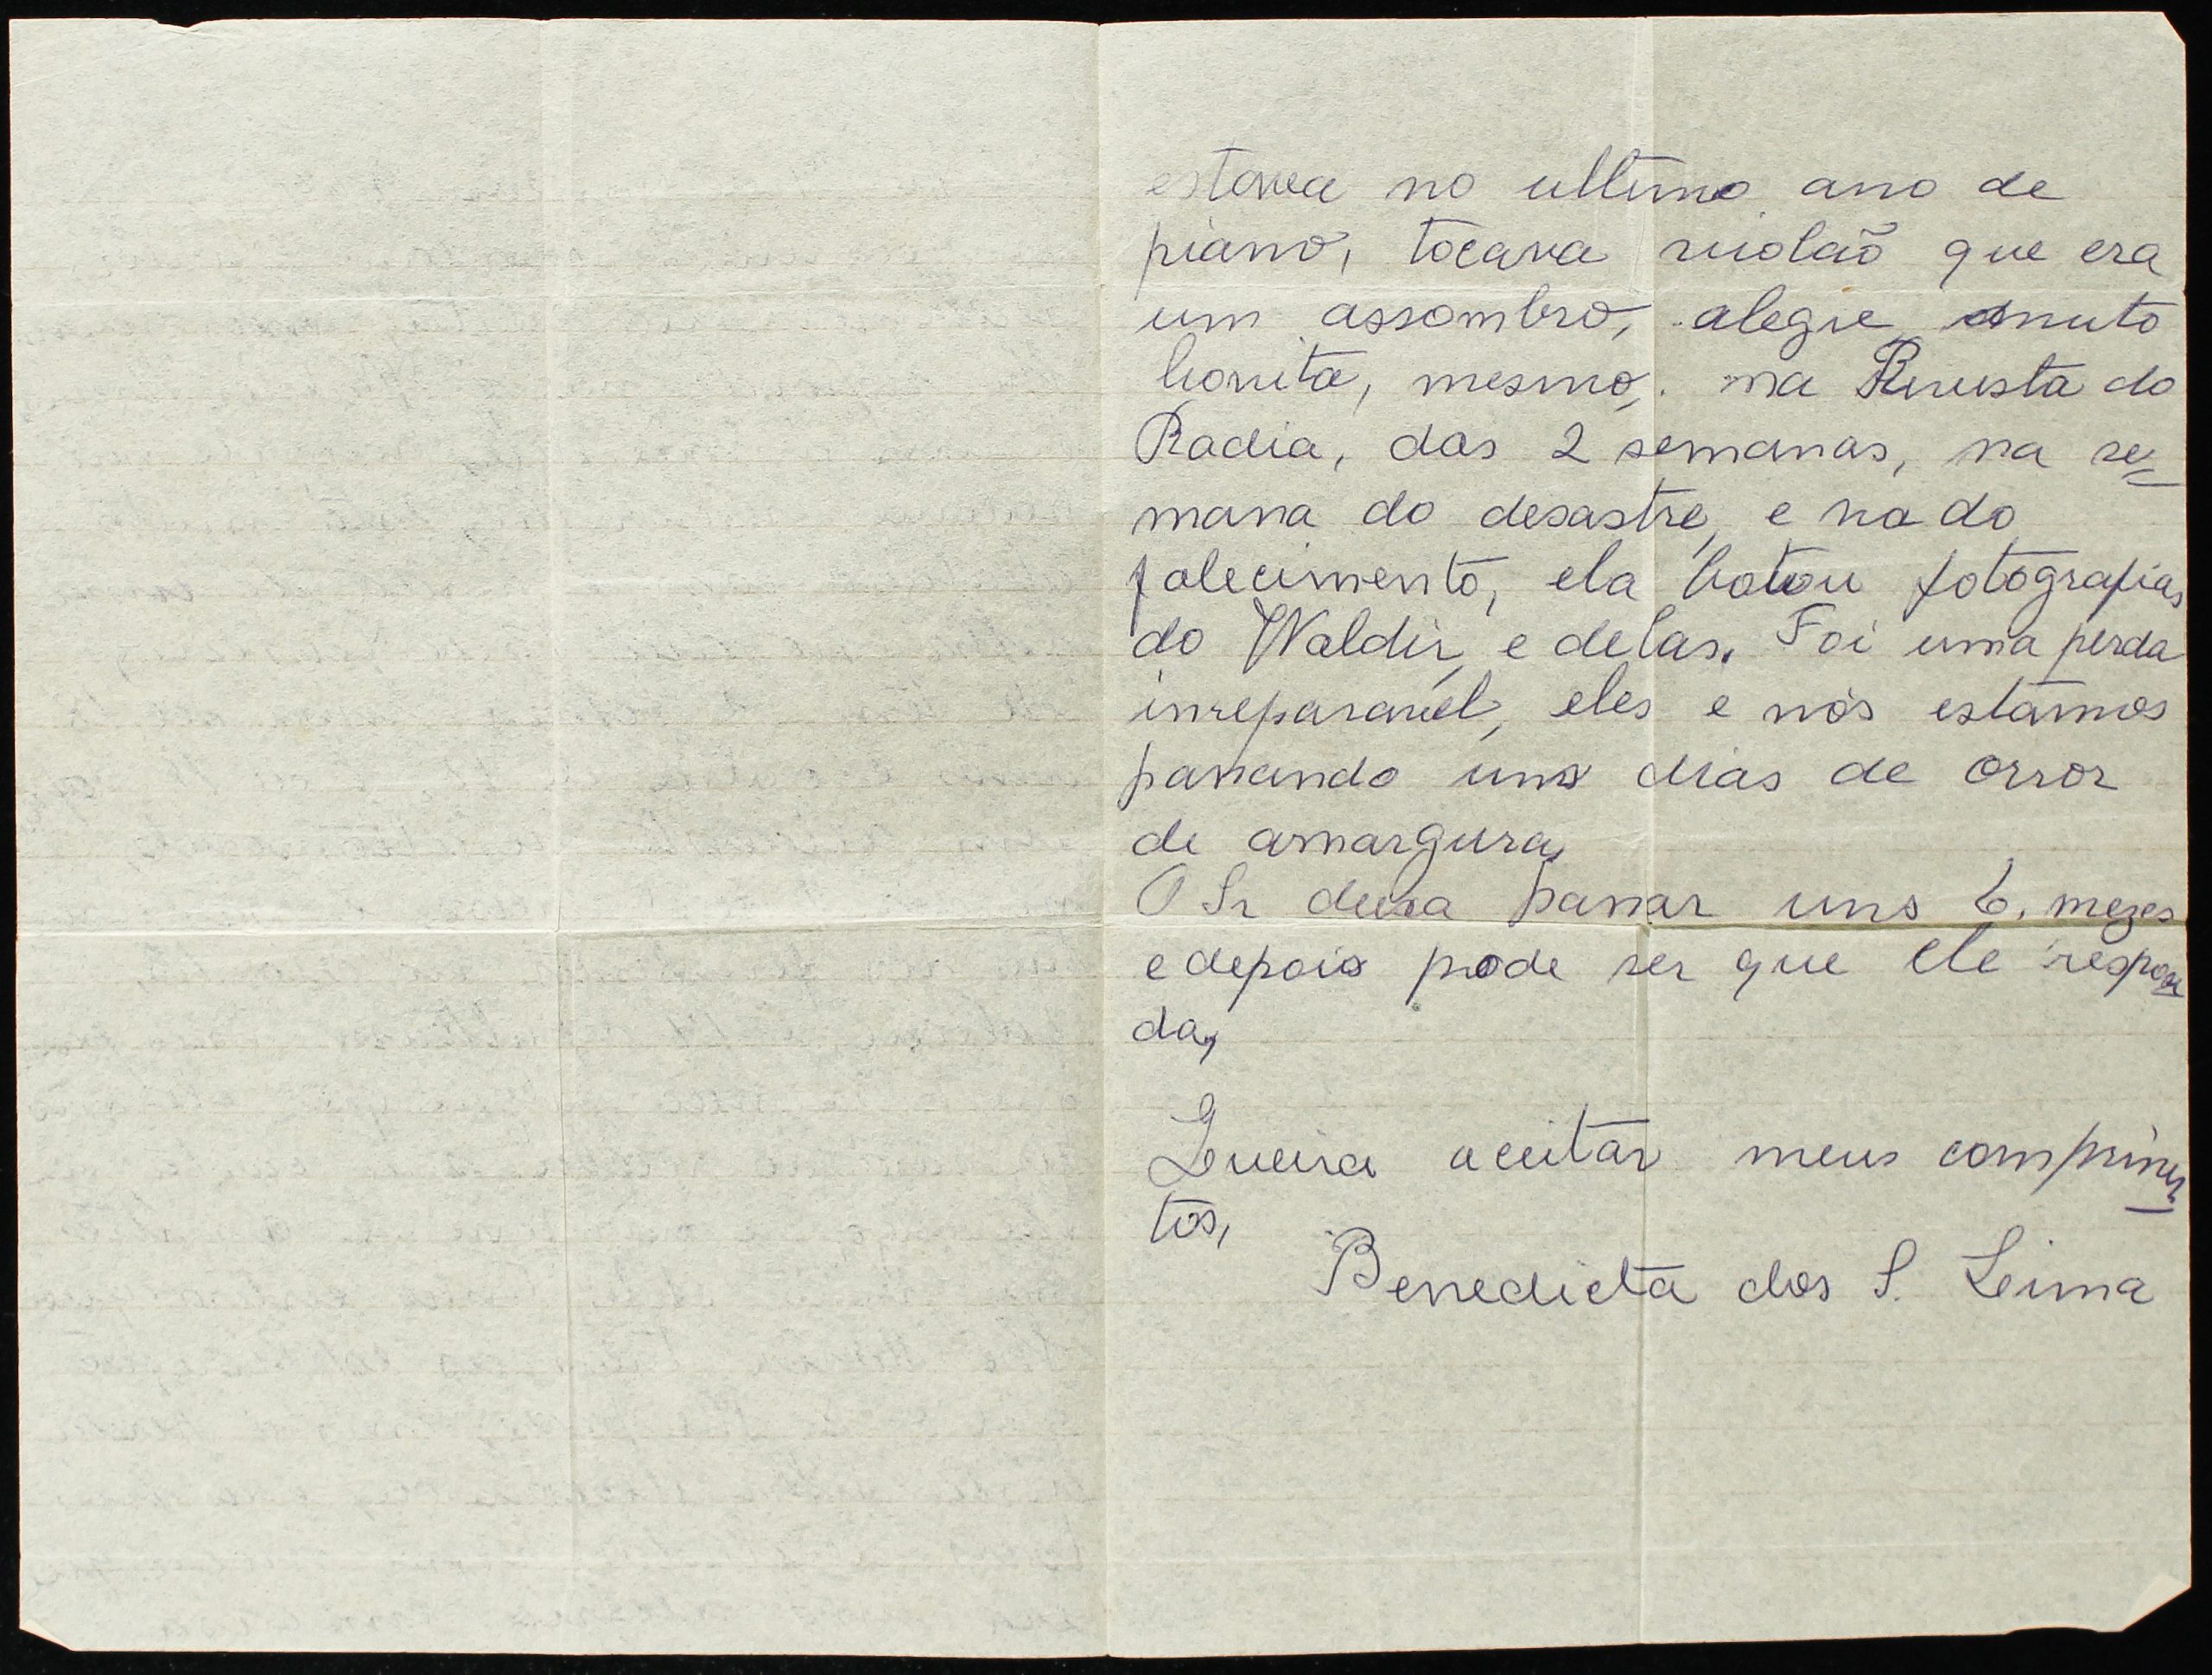 estava no ultimo ano de
piano, tocava violaõ que era
um assombro, alegre, muto
bonita, mesmo, na Revista do
Radia, das 2 semanas, na se=
mana do desastre, e na do
falecimento, ela botou fotografias
do Waldir, e delas. Foi uma perda
irreparavel, eles e nós estamos
passando uns dias de orror
de amargura,
O Sr deixa passar uns 6. mezes
e depois pode ser que ele respon
da,
Queira aceitar meus comprimen
tos,
Benedicta dos S. Leima